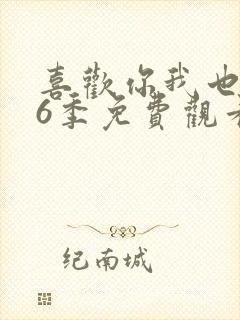 喜歡你我也
6季免費觀
纪南城